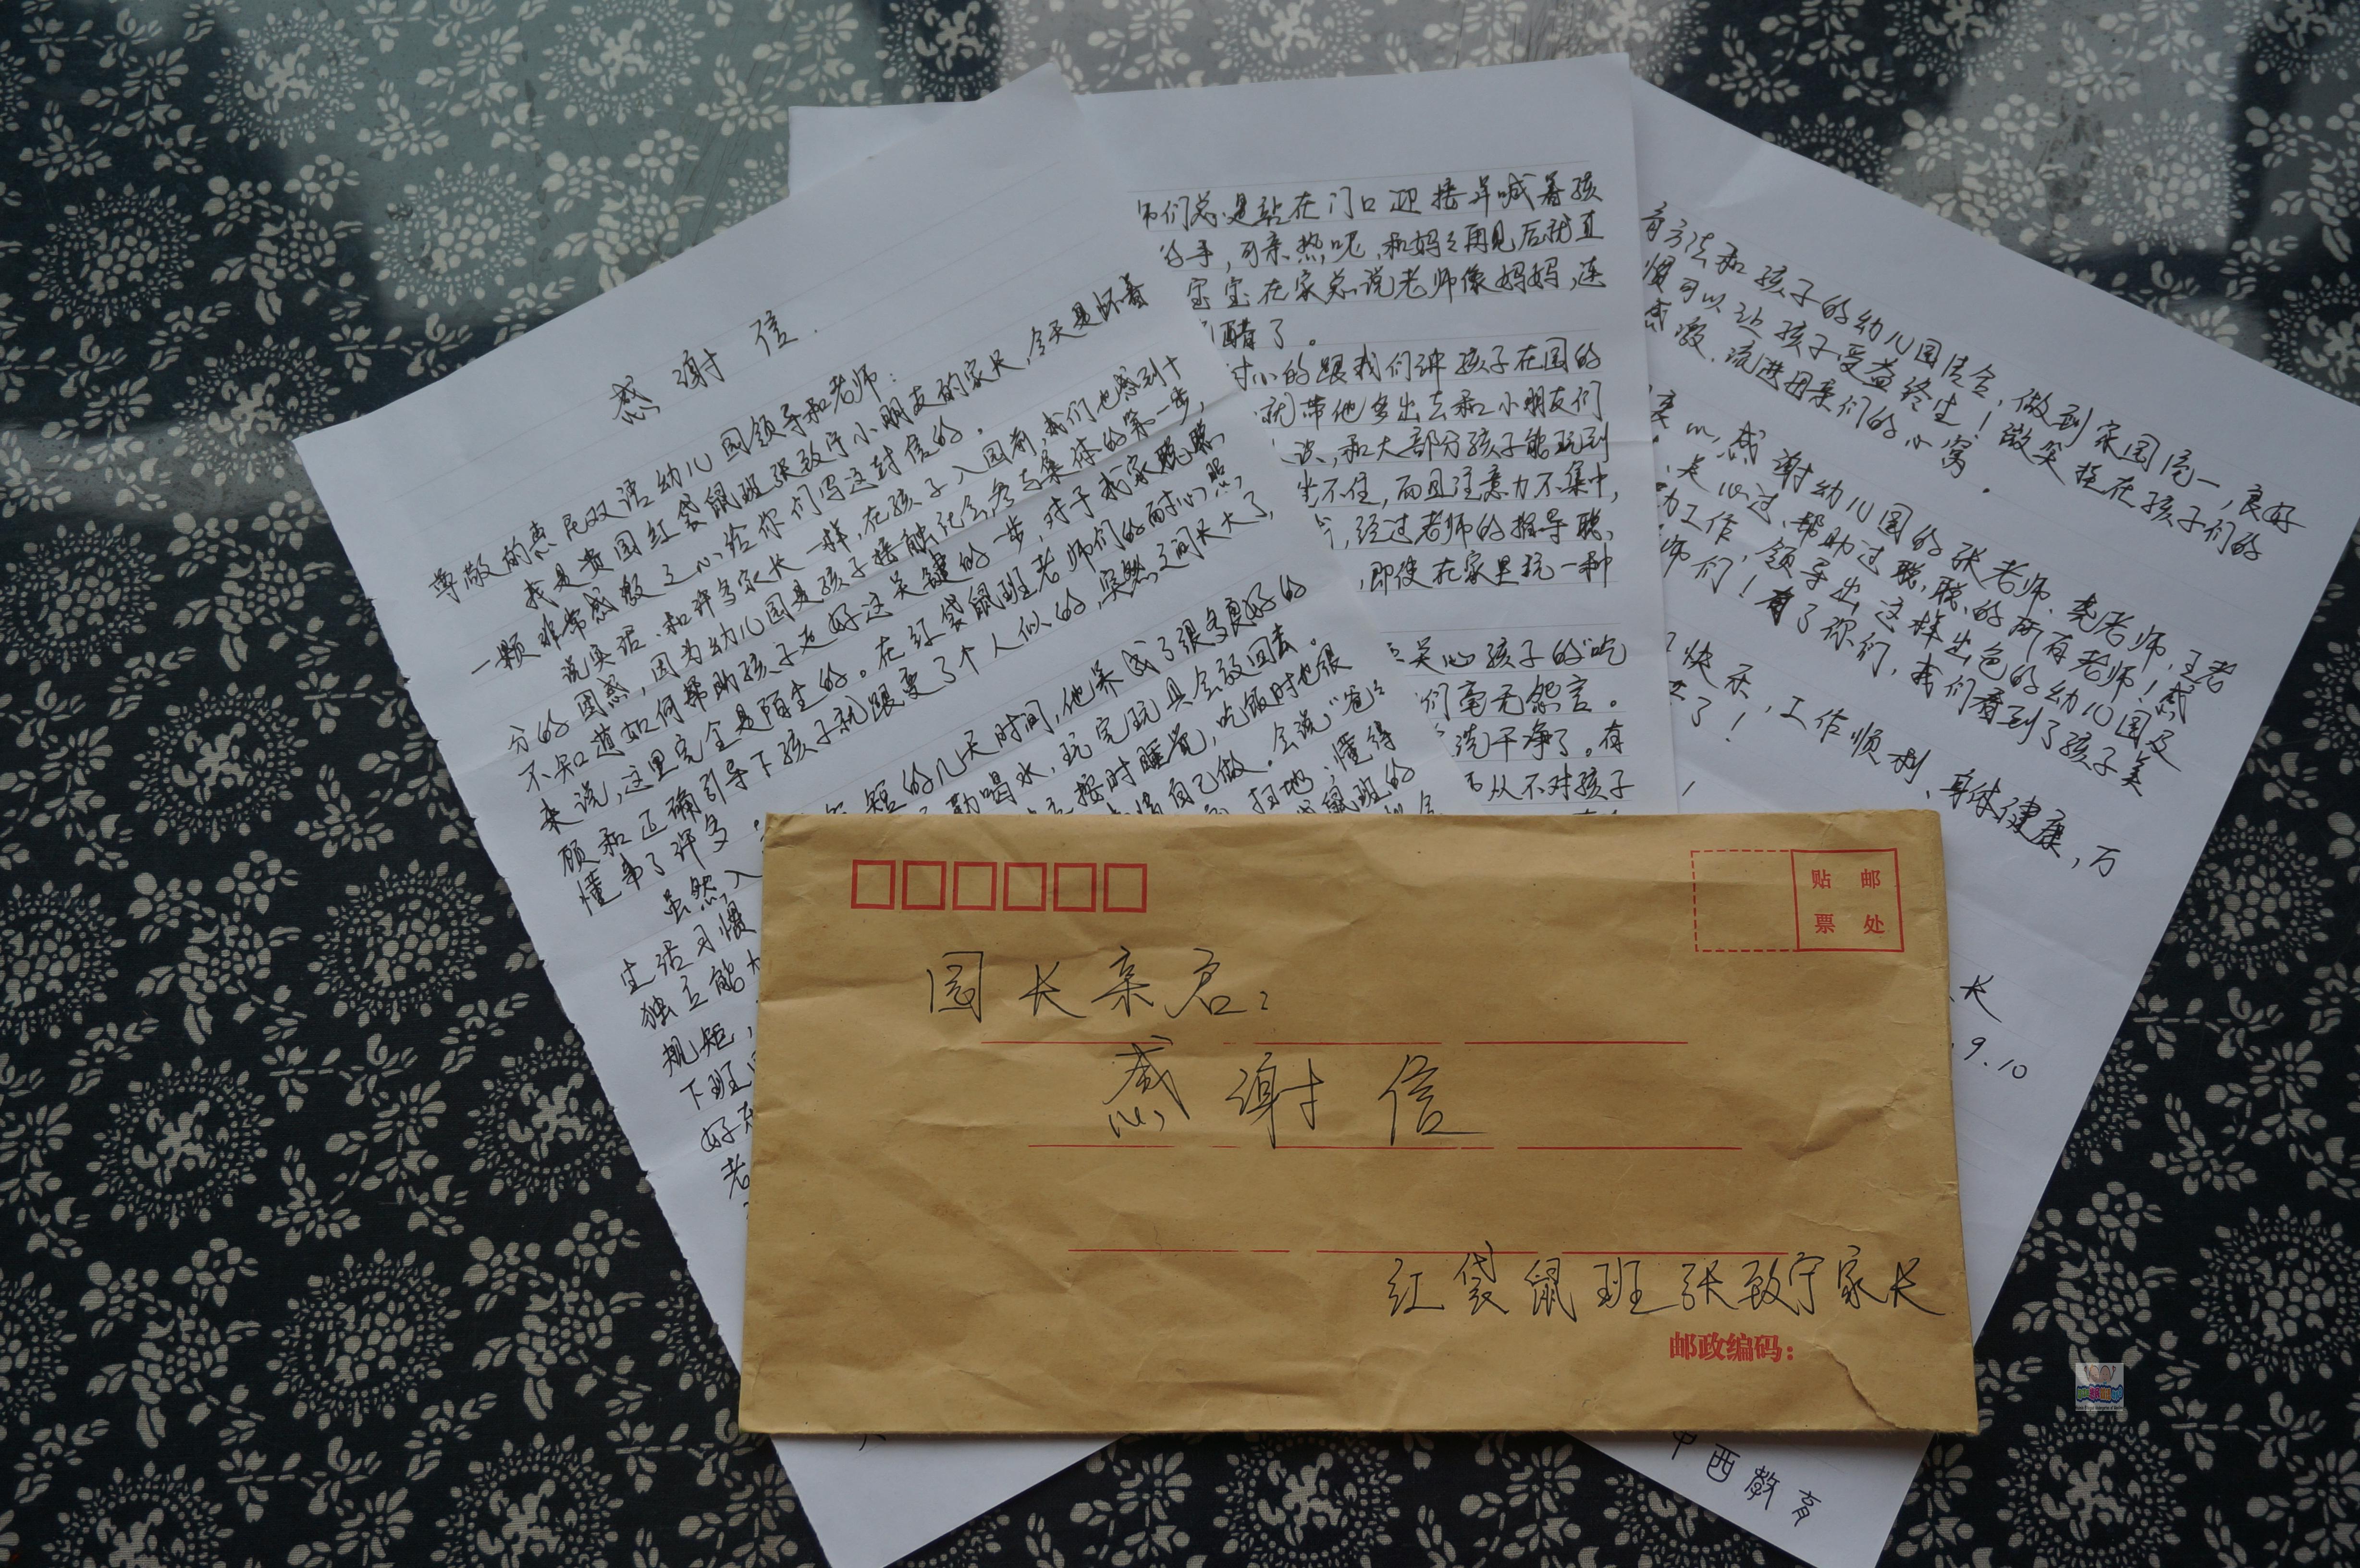 感谢信
尊敬的惠民双语幼儿园领导和老师:
我是贵园红袋鼠班张致宁小朋友的家长,今天是怀着
一颗非常感激之心给你们写这封信的。
说实话、和许多家长一样,在孩子入园前,我们也感到十
分的困惑,因为幼儿园是孩子接触社会,参与集体的第一步,
不知道如何帮助孩子走好这关键的一步,对于我家聪聪
来说,这里完全是陌生的。在红袋鼠班老师们的耐心照
顾和正确引导下孩子就跟变了个人似的,突然之间长大了,
懂事了许多。
虽然入
短的几天时间,他养成了很多良好的
生活习惯
勤喝水,玩完玩具会放回去。
独立能力
按时睡觉,吃饭时也很
规矩,
自己做。会说“爸爸
下班
扫地,懂得
好
鼠班的
老
师们总是站在门口迎接并喊着孩
的手,可亲热呢,和妈妈再见后就直
宝宝在家总说老师像妈妈,连
醋了。
小的跟我们讲孩子在园的
就带他多出去和小朋友们
说,和大部分孩子能玩到
坐不住,而且注意力不集中,
经过老师的指导聪
,即使在家里玩一种
关心孩子的“吃
们毫无怨言。
洗干净了。有
从不对孩子
有方法和孩子的幼儿园结合,做到家园同一,良好
惯可以让孩子受益终生!微笑挂在孩子们的
流进母亲们的心窝。
感谢幼儿园的张老师、尧老师、王老
关心过、帮助过聪聪的所有老师!感
力工作,领导出这样出色的幼儿园及
师们!有了你们,我们看到了孩子美
快乐,工作顺利、身体健康,万
了!
长
.9.10
贴邮
票处
园长亲启:
感谢信
红袋鼠班张致宁家长
邮政编码:
中西教育